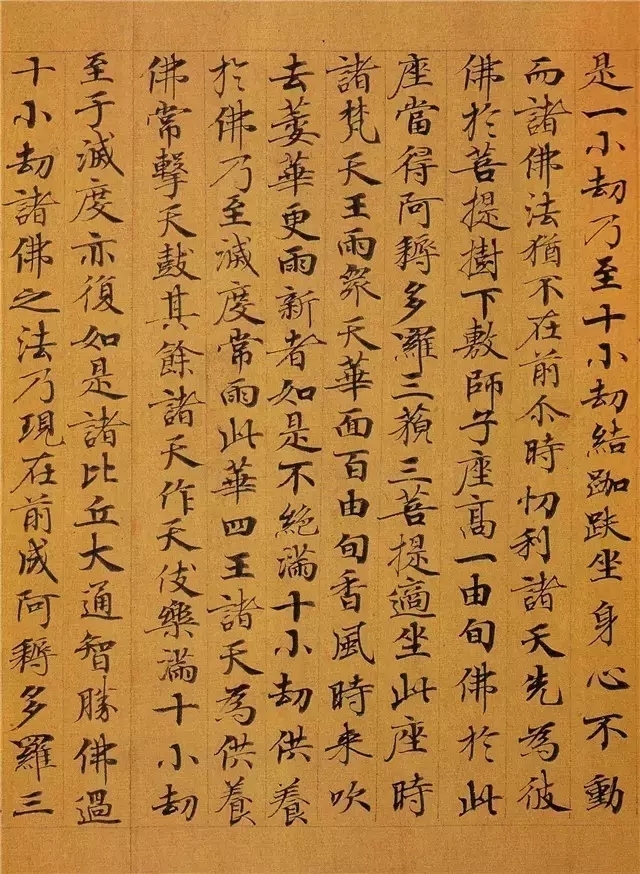 是一小劫乃至十小劫結跏趺坐身心不動
而諸佛法猶不在前尒時忉利諸天先為彼
佛於菩提樹下敷師子座高一由旬佛於此
座當得阿耨多羅三藐三菩提適坐此座時
諸梵天王雨眾天華面百由旬香風時来吹
去萎華更雨新者如是不絶滿十小劫供養
於佛乃至滅度常雨此華四王諸天為供養
佛常擊天鼓其餘諸天作天伎樂滿十小劫
至于滅度亦復如是諸比丘大通智勝佛過
十小劫諸佛之法乃現在前成阿耨多羅三